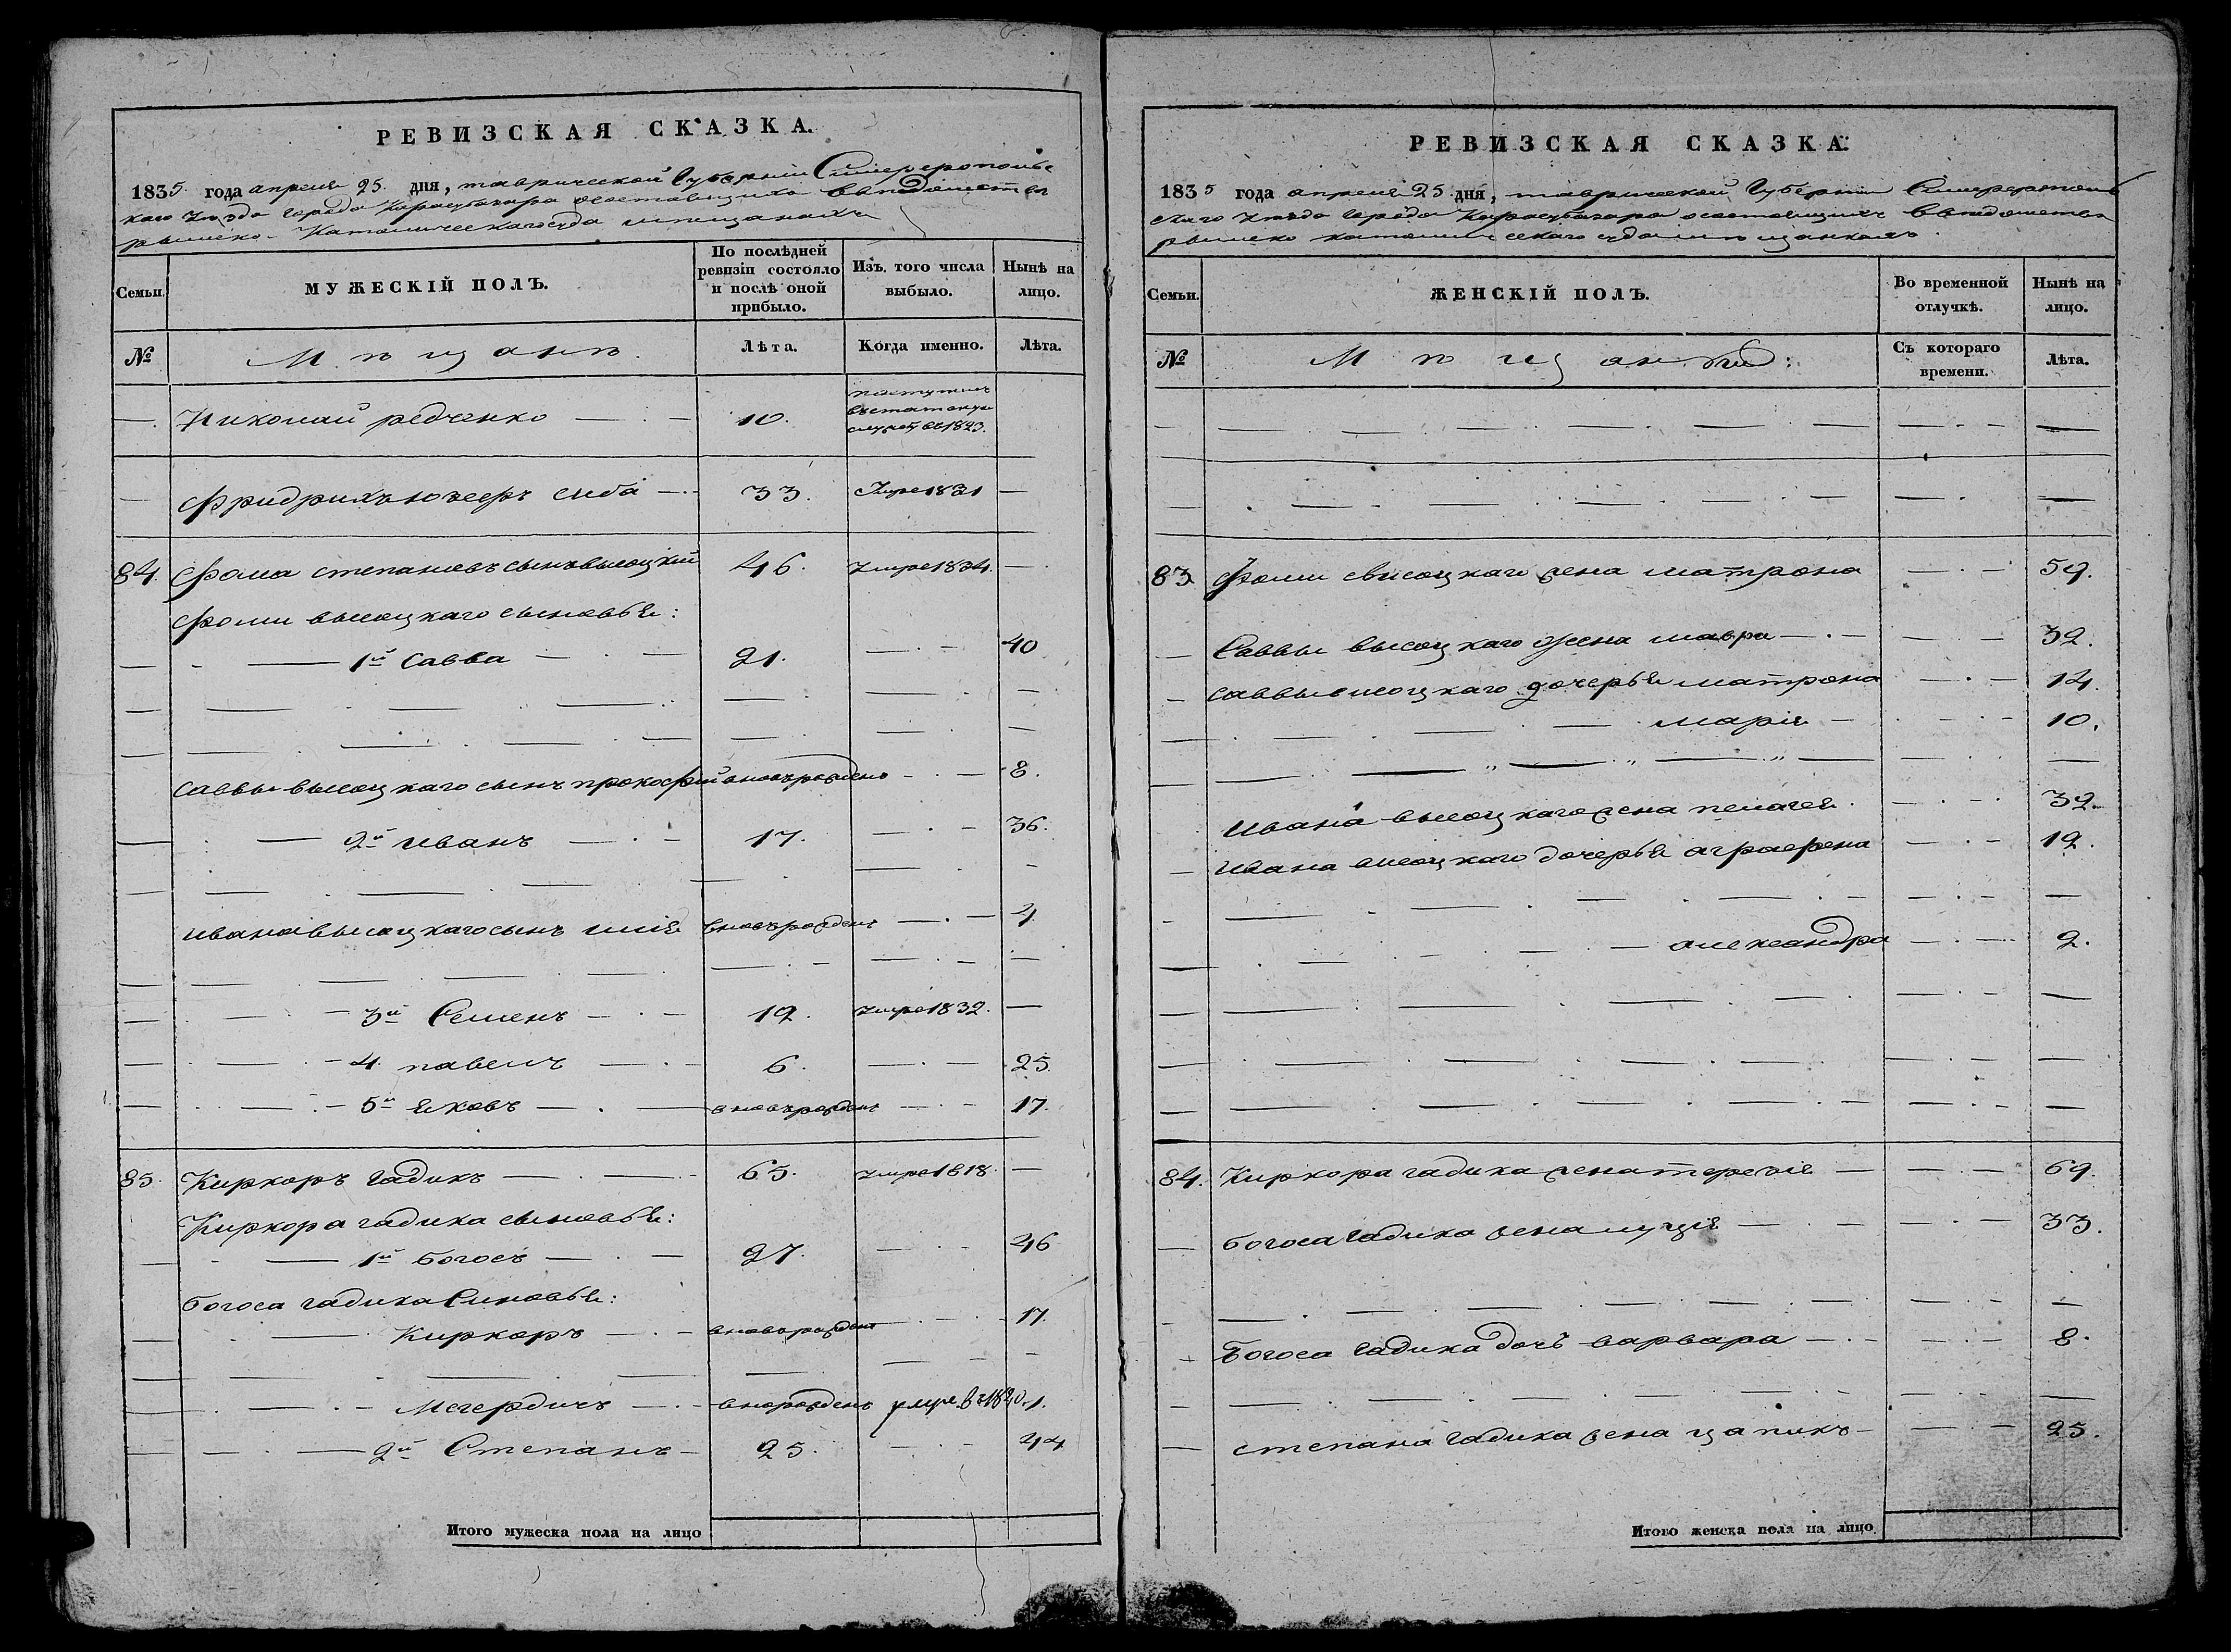 РЕВИЗСКАЯ СКАЗКА.
1835. года апреля 25. дня, таврической Губерніи Симферополь
скаго уезда города Карасубазара о состоящихъ в ведомстве
римско-Католическаго суда мѣщанахъ
Семьи.
МУЖЕСКІЙ ПОЛЪ.
По послѣдней ревизіи состояло и послѣ оной прибыло.
Изъ того числа выбыло.
Нынѣ на лицо.
№
Мѣщанѣ.
Лѣта.
Когда именно.
Лѣта.
Николай редченко 10. поступилъ
въ
въ 1823.
Фридрихъ 33. Умре 1831
84. Фома степановъ сынъ высоцкій 46. Умре 1834.
Фоми высоцкаго сыновья:
1й Савва 21. 40
Саввы высоцкаго сынъ прокофій вновърожденъ 8.
2й иванъ 17. 36.
ивана высоцкаго сынъ илія вновърожденъ 4
3й Семенъ 12. Умре 1832.
4. павелъ 6. 25.
5й Яковъ вновърожденъ 17.
85. Киркоръ гадикъ 65. Умре 1818.
Киркора гадика сыновья:
1й Богосъ 27. 46
Богоса гадика Синовья:
Киркоръ вновьрожденъ 17.
Мегердичъ внорожденъ умре. въ 1.
2й Степанъ 25. 44
Итого мужеска пола на лицо
РЕВИЗСКАЯ СКАЗКА.
1835 года апреля 25 дня, таврической Губерніи Симферополь
скаго уезда города Карасубазара о состоящихъ в ведомстве
римско католическаго суда мѣщанкахъ.
Семьи.
ЖЕНСКІЙ ПОЛЪ.
Во временной отлучкѣ.
Нынѣ на лицо.
№
Мѣщанки:
Съ котораго времени.
Лѣта.
83. Фоми висоцкаго жена матрона 59.
Саввы высоцкаго жена мавра 32.
саввы висоцкаго дочерья матрона 14.
марія 10.
ивана высоцкаго жена пелагея. 32.
ивана висоцкаго дочерья аграфена 12.
александра 2.
84. Киркора гадика жена терезія 69.
богоса гадика жена луція 33.
Богоса гадика дочь варвара 8.
степана гадика жена цапикъ 25.
Итого женска пола на лицо